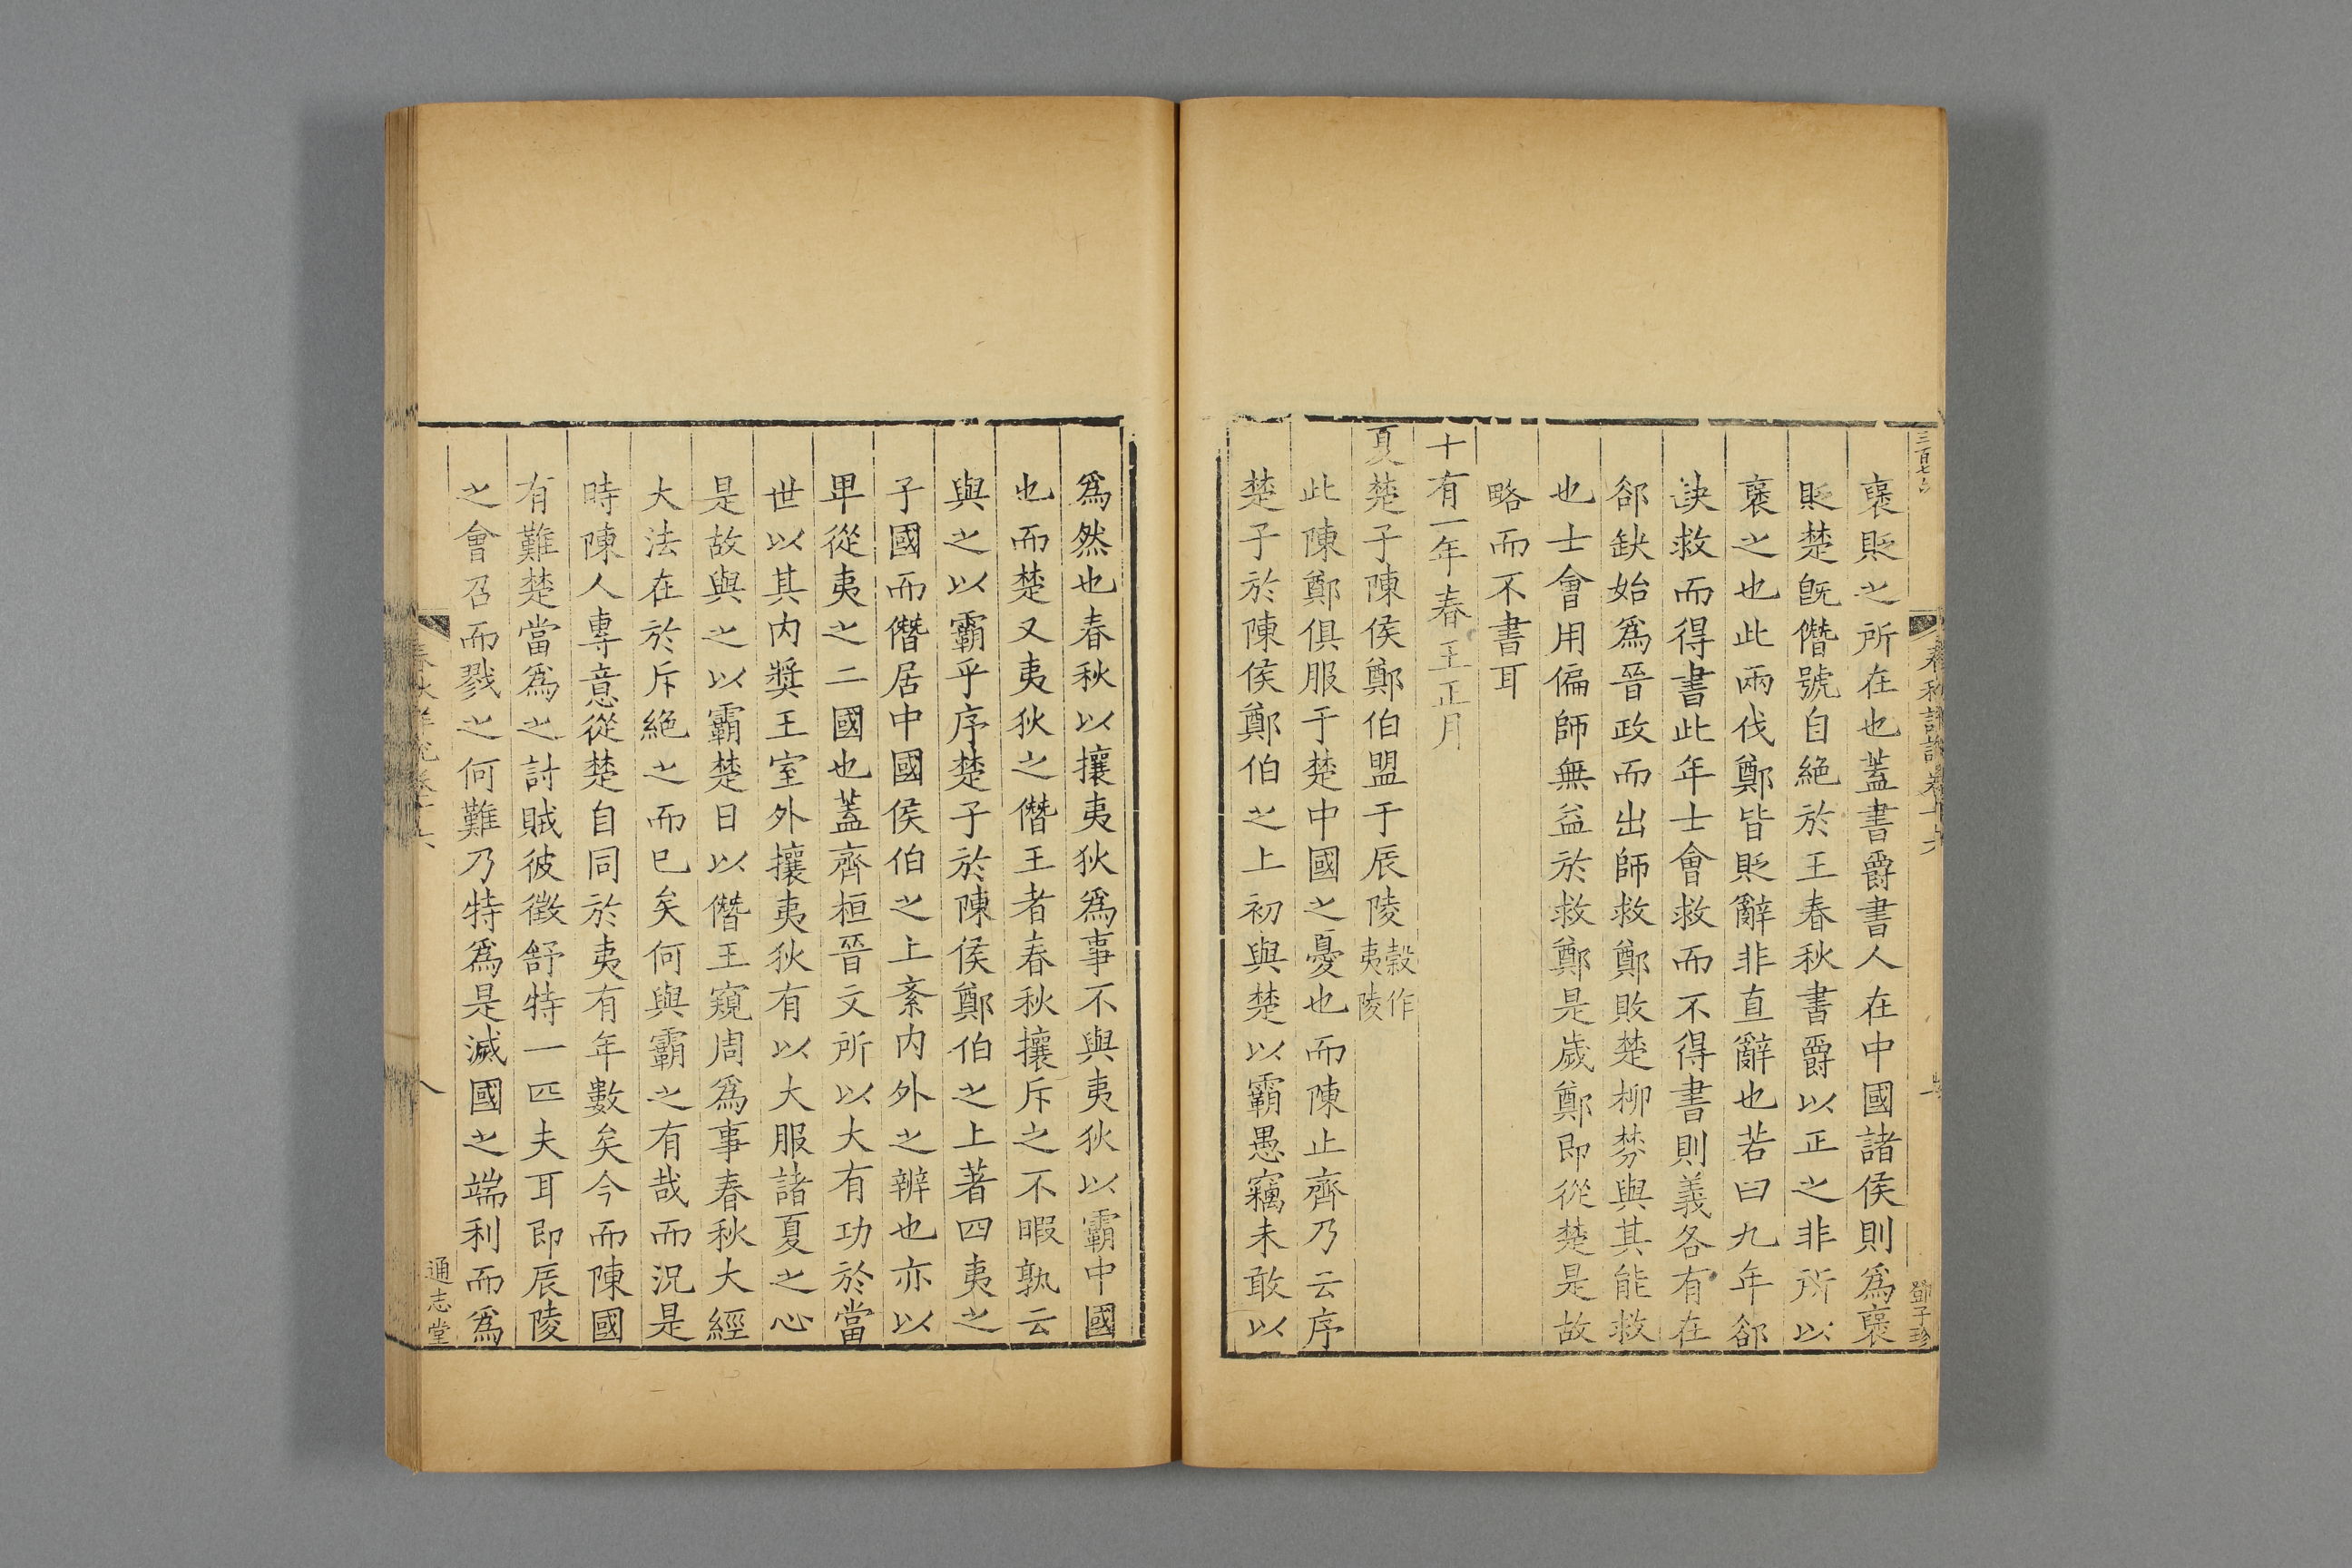 襃貶之所在也蓋書爵書人在中國諸侯則爲襃
貶楚旣僭號自絶於王春秋書爵以正之非所以
襃之也此兩伐鄭皆貶辭非直辭也若曰九年郤
缺救而得書此年士會救而不得書則義各有在
郤缺始爲晉政而出師救鄭敗楚柳棼與其能救
也士會用偏師無益於救鄭是歲鄭即從楚是故
略而不書耳
十有一年春王正月
夏楚子陳侯鄭伯盟于辰陵穀作夷陵
此陳鄭俱服于楚中國之憂也而陳止齊乃云序
楚子於陳侯鄭伯之上初與楚以霸愚竊未敢以
鄧子珍
爲然也春秋以攘夷狄爲事不與夷狄以霸中國
也而楚又夷狄之僭王者春秋攘斥之不暇孰云
與之以霸乎序楚子於陳侯鄭伯之上著四夷之
子國而僭居中國侯伯之上紊内外之辨也亦以
甲從夷之二國也蓋齊桓晉文所以大有功於當
世以其内奬王室外攘夷狄有以大服諸夏之心
是故與之以霸楚日以僭王窺周爲事春秋大經
大法在於斥絶之而已矣何與霸之有哉而況是
時陳人專意從楚自同於夷有年數矣今而陳國
有難楚當爲之討賊彼徵舒特一匹夫耳即辰陵
之會召而戮之何難乃特爲是滅國之端利而爲
通志堂